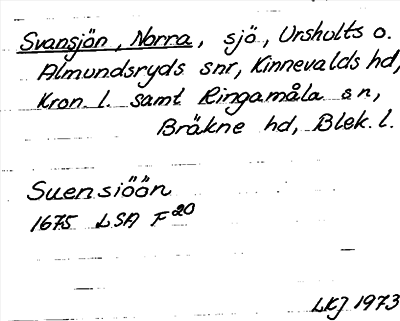 Svansjön, Norra, sjö, Urshults o.
Almundsryds snr, Kinnevalds hd,
Kron. l. samt Ringamåla sn,
Bräkne hd, Blek. l.
Suensiöön
1675 LSA F20
LKJ 1973